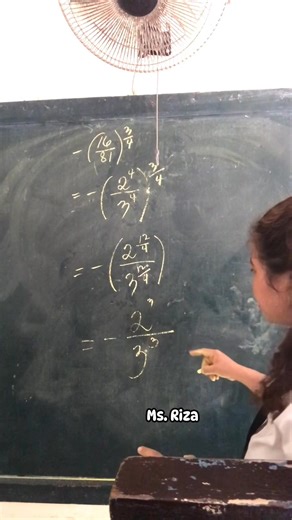 -(16/81)^(3/4)
= -(2^4/3^4)^(3/4)
= -(2^(12/4)/3^(12/4))
= - 2^3/3^3
Ms. Riza